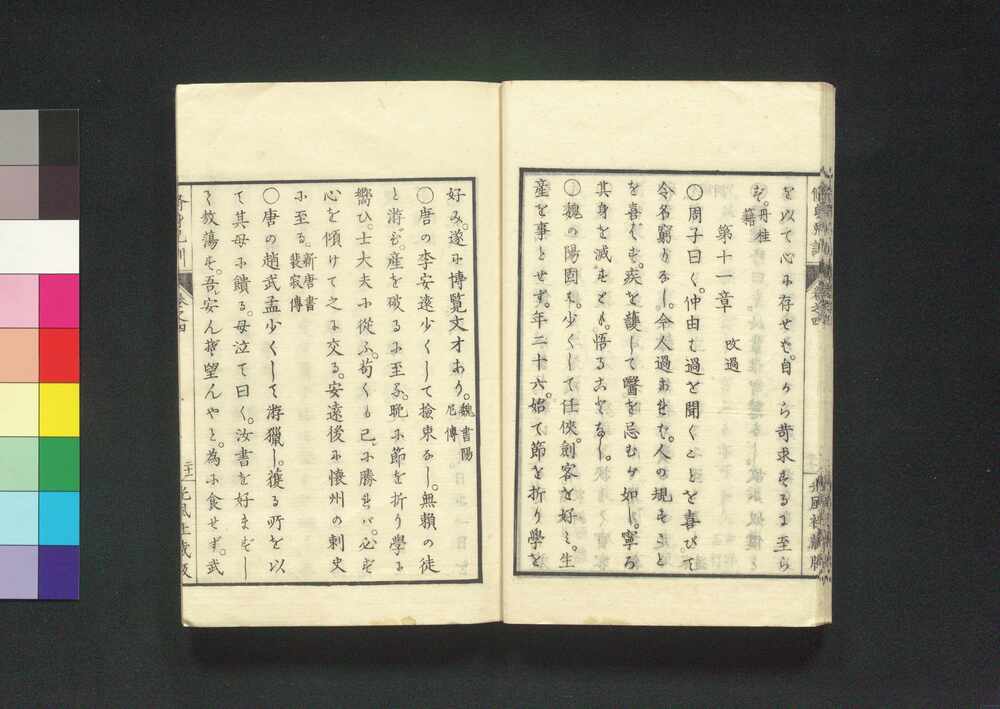 を以て心に存せば。自から苛求するに至ら
ず。丹桂籍
第十一章 改過
○周子曰く。仲由は過を聞くことを喜びて
令名窮りなし。今人過あれば。人の規すこと
を喜ばず。疾を護して醫を忌むが如し。寧ろ
其身を滅すとも。悟ることなし。
○魏の陽固は。少くして任俠。劍客を好み。生
産を事とせず。年二十六。始て節を折り學を
好み。遂に博覽文才あり。魏書陽尼傳
○唐の李安遠少くして檢束なし。無賴の徒
と游び。産を破るに至る。晩に節を折り學に
嚮ひ。士大夫に從ふ。苟くも己に勝れバ。必ず
心を傾けて之に交る。安遠後に懷州の刺史
に至る。新唐書裴寂傳
○唐の趙武孟少くして游獵し。獲る所を以
て其母に饋る。母泣て曰く。汝書を好まずし
て放蕩す。吾安んぞ望んやと。為に食せず。武
卷之四
二十二